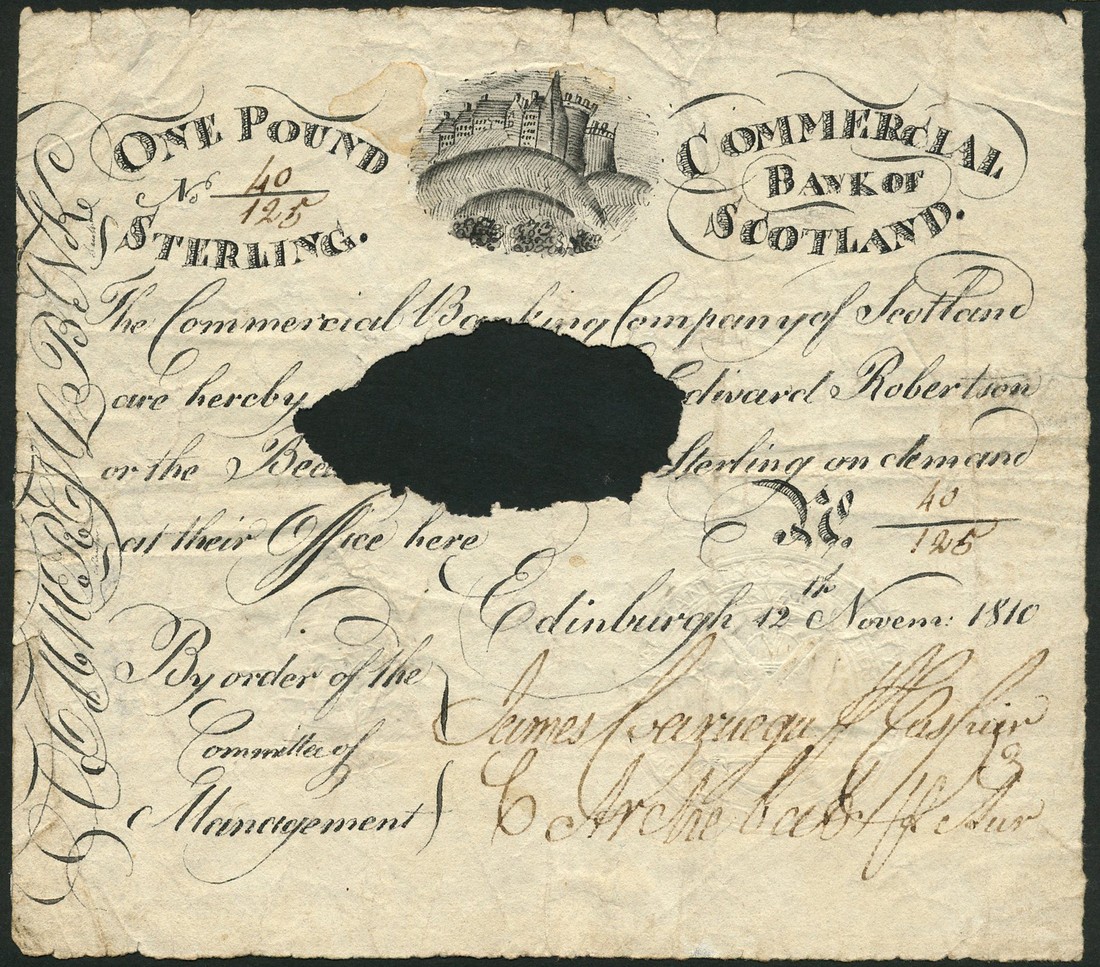 ONE POUND
No 40/125
STERLING.
COMMERCIAL
BANK OF
SCOTLAND.
The Commercial Banking Company of Scotland
are hereby Edward Robertson
or the Sterling on demand
at their Office here
No. 40/125
Edinburgh 12th Novem: 1810
By order of the
Committee of
Management
James Cashier